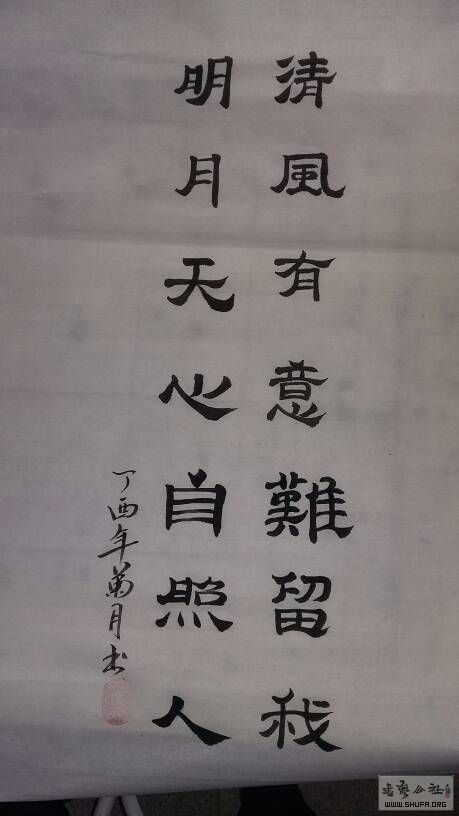 清風有意難留我
明月无心自照人
丁酉年菊月书
书艺公社
WWW.SHUFA.ORG